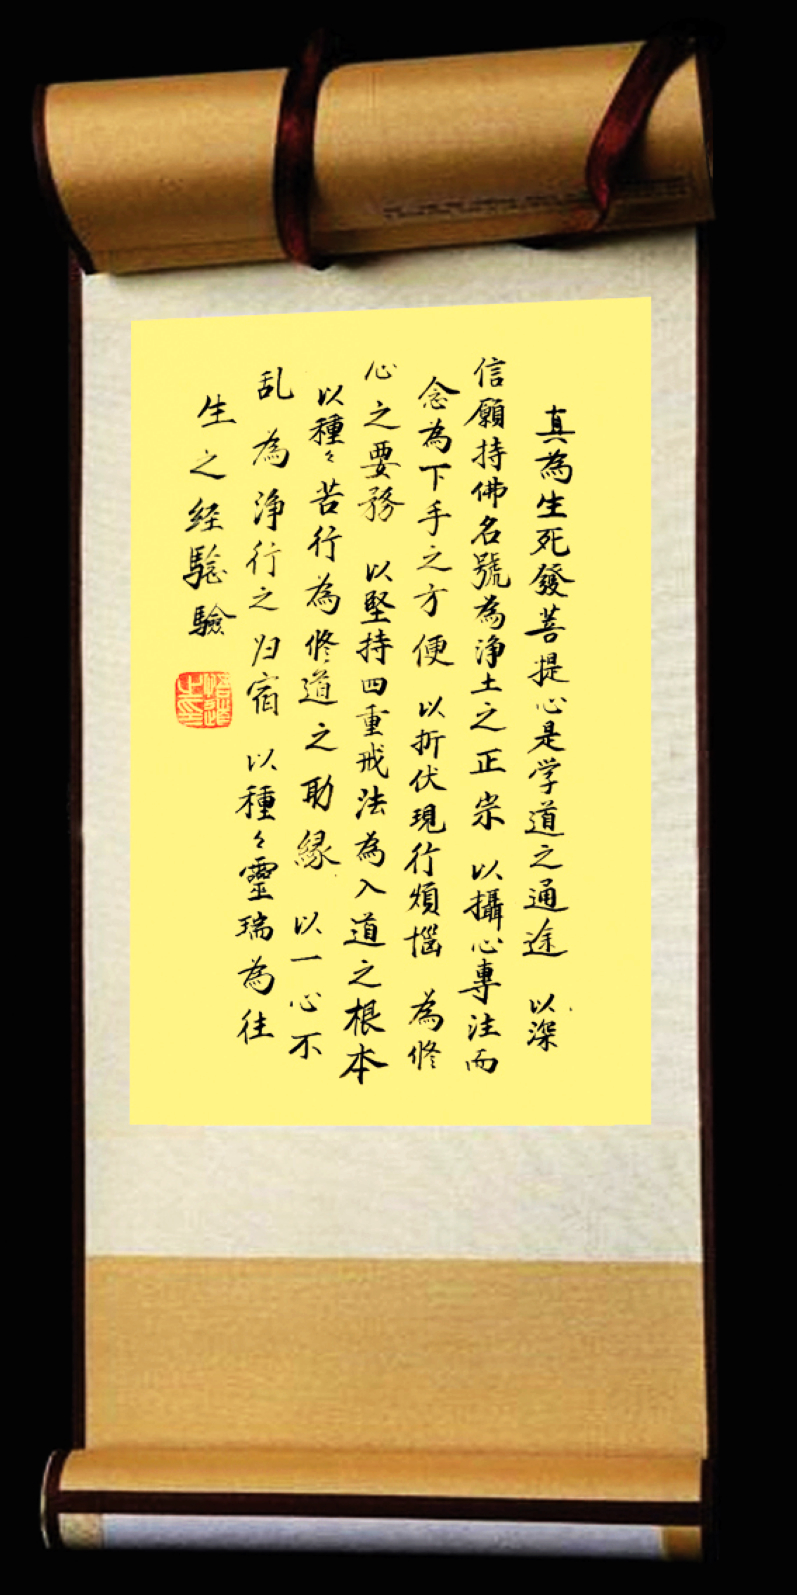 真為生死發菩提心是学道之通途 以深
信願持佛名號為淨土之正宗 以攝心專注而
念為下手之方便 以折伏現行煩惱 為修
心之要務 以堅持四重戒法為入道之根本
以種々苦行為修道之助緣 以一心不
乱為淨行之归宿 以種々靈瑞為往
生之経騐驗
悟道之印